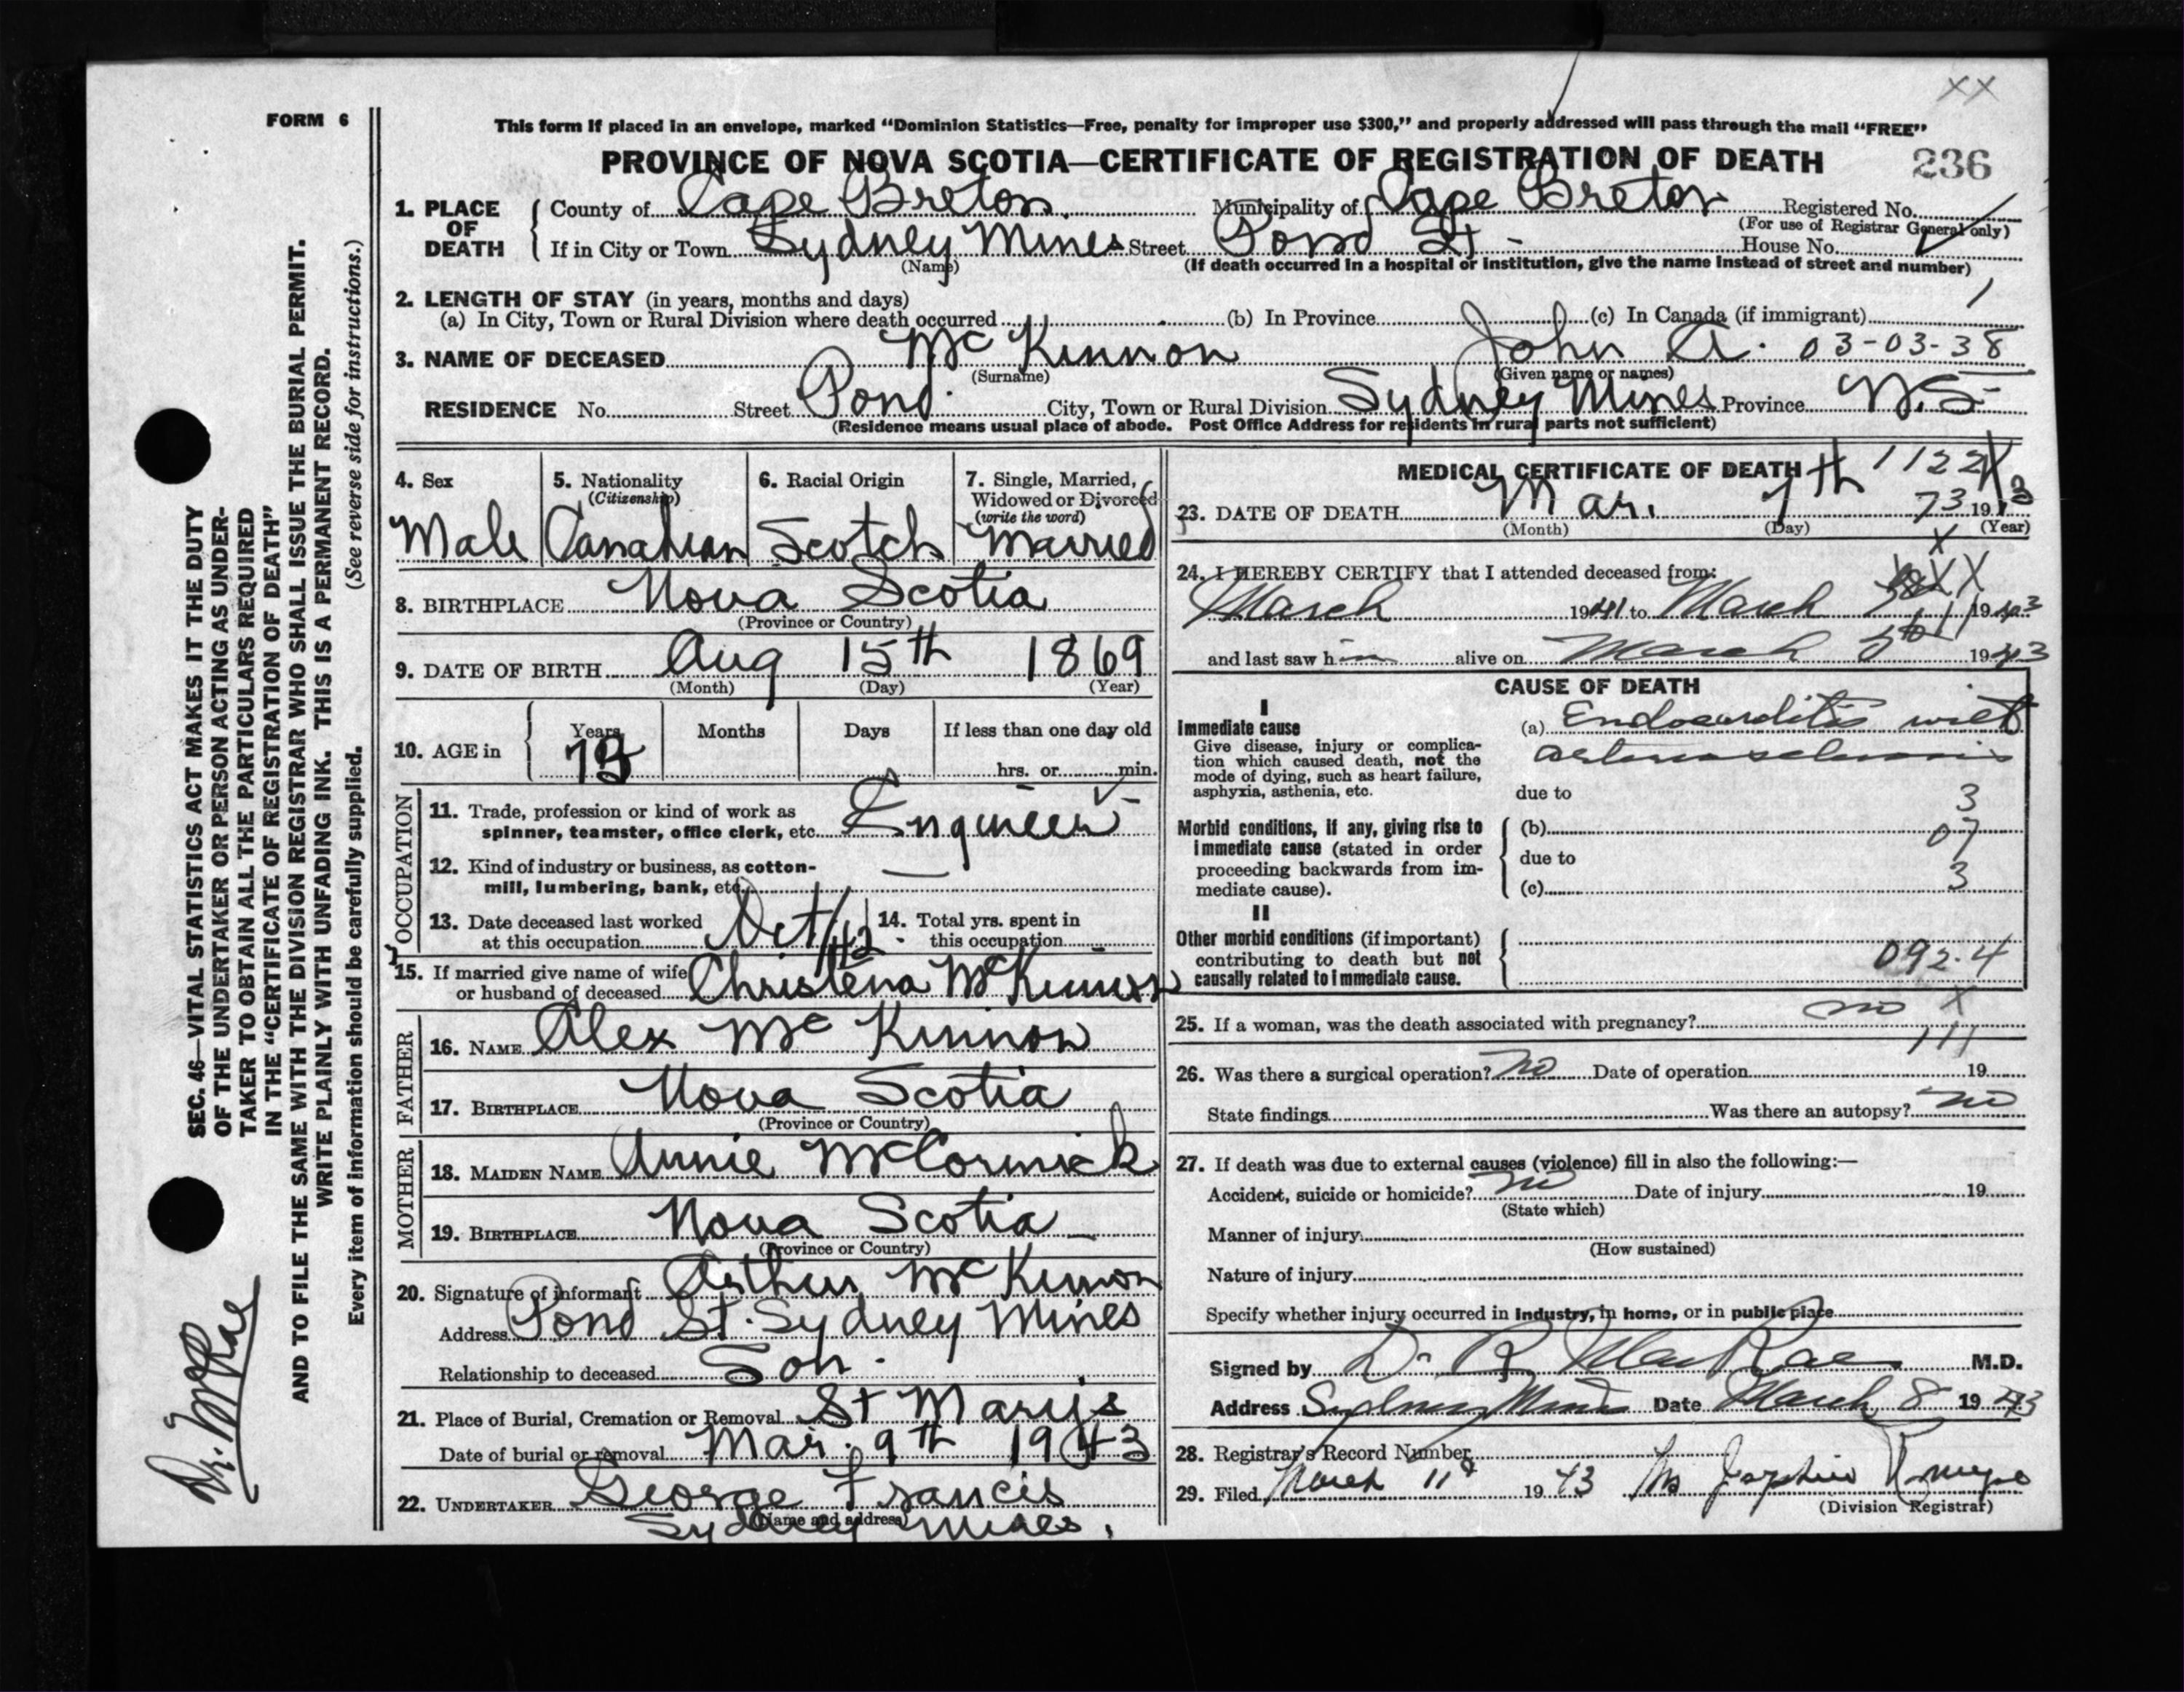 XX
FORM 6
This form if placed in an envelope, marked “Dominion Statistics—Free, penalty for improper use $300,” and properly addressed will pass through the mail “FREE”
PROVINCE OF NOVA SCOTIA—CERTIFICATE OF REGISTRATION OF DEATH 236
1. PLACE OF DEATH County of Cape Breton Municipality of Cape Breton Registered No.
(For use of Registrar General only)
If in City or Town Sydney Mines Street Pond St - House No.
(Name) (If death occurred in a hospital or institution, give the name instead of street and number)
2. LENGTH OF STAY (in years, months and days)
(a) In City, Town or Rural Division where death occurred (b) In Province (c) In Canada (if immigrant)
3. NAME OF DECEASED McKinnon John A. 03-03-38
(Surname) (Given name or names)
RESIDENCE No. Street Pond. City, Town or Rural Division Sydney Mines Province N.S-
(Residence means usual place of abode. Post Office Address for residents in rural parts not sufficient)
4. Sex 5. Nationality (Citizenship) 6. Racial Origin 7. Single, Married, Widowed or Divorced (write the word)
Male Canadian Scotch Married
8. BIRTHPLACE Nova Scotia
(Province or Country)
9. DATE OF BIRTH Aug 15th 1869
(Month) (Day) (Year)
10. AGE in Years Months Days If less than one day old
73 hrs. or min.
OCCUPATION
11. Trade, profession or kind of work as
spinner, teamster, office clerk, etc. Engineer
12. Kind of industry or business, as cotton-
mill, lumbering, bank, etc. —
13. Date deceased last worked
at this occupation Oct/42 14. Total yrs. spent in
this occupation -
15. If married give name of wife
or husband of deceased Christena McKinnon
FATHER
16. NAME Alex McKinnon
17. BIRTHPLACE Nova Scotia
(Province or Country)
MOTHER
18. MAIDEN NAME Annie McCormick
19. BIRTHPLACE Nova Scotia
(Province or Country)
20. Signature of informant Arthur McKinnon
Address Pond St. Sydney Mines
Relationship to deceased Son.
21. Place of Burial, Cremation or Removal St Mary's
Date of burial or removal Mar. 9th 1943
22. UNDERTAKER George Francis
(Name and address)
Sydney Mines.
MEDICAL CERTIFICATE OF DEATH 1122
23. DATE OF DEATH Mar. 7th 73 19
(Month) (Day) (Year)
24. I HEREBY CERTIFY that I attended deceased from:
March 1941 to March 1943
and last saw him alive on March 5th 1943
CAUSE OF DEATH
I
Immediate cause
Give disease, injury or complica-
tion which caused death, not the
mode of dying, such as heart failure,
asphyxia, asthenia, etc.
(a) Endocarditis with
arteriosclerosis
due to 3
Morbid conditions, if any, giving rise to
immediate cause (stated in order
proceeding backwards from im-
mediate cause).
(b) 07
due to
(c) 3
II
Other morbid conditions (if important)
contributing to death but not
causally related to immediate cause.
092.4
25. If a woman, was the death associated with pregnancy? no X
111
26. Was there a surgical operation? no Date of operation 19
State findings Was there an autopsy? no
27. If death was due to external causes (violence) fill in also the following:—
Accident, suicide or homicide? no Date of injury 19
(State which)
Manner of injury
(How sustained)
Nature of injury
Specify whether injury occurred in industry, in home, or in public place
Signed by D. R. MacRae M.D.
Address Sydney Mines Date March 8 1943
28. Registrar's Record Number
29. Filed March 11 1943
(Division Registrar)
SEC. 46—VITAL STATISTICS ACT MAKES IT THE DUTY
OF THE UNDERTAKER OR PERSON ACTING AS UNDER-
TAKER TO OBTAIN ALL THE PARTICULARS REQUIRED
IN THE “CERTIFICATE OF REGISTRATION OF DEATH”
AND TO FILE THE SAME WITH THE DIVISION REGISTRAR WHO SHALL ISSUE THE BURIAL PERMIT.
WRITE PLAINLY WITH UNFADING INK. THIS IS A PERMANENT RECORD.
Every item of information should be carefully supplied. (See reverse side for instructions.)
Dr. McRae